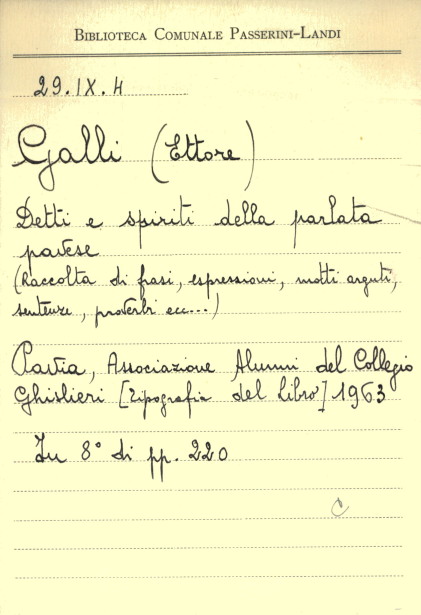 BIBLIOTECA COMUNALE PASSERINI-LANDI
29.IX.4
Galli (Ettore)
Detti e spiriti della parlata
pavese
(Raccolta di frasi, espressioni, motti arguti,
sentenze, proverbi ecc...)
Pavia, Associazione Alunni del Collegio
Ghislieri [Tipografia del Libro] 1963
In 8° di pp. 220
C